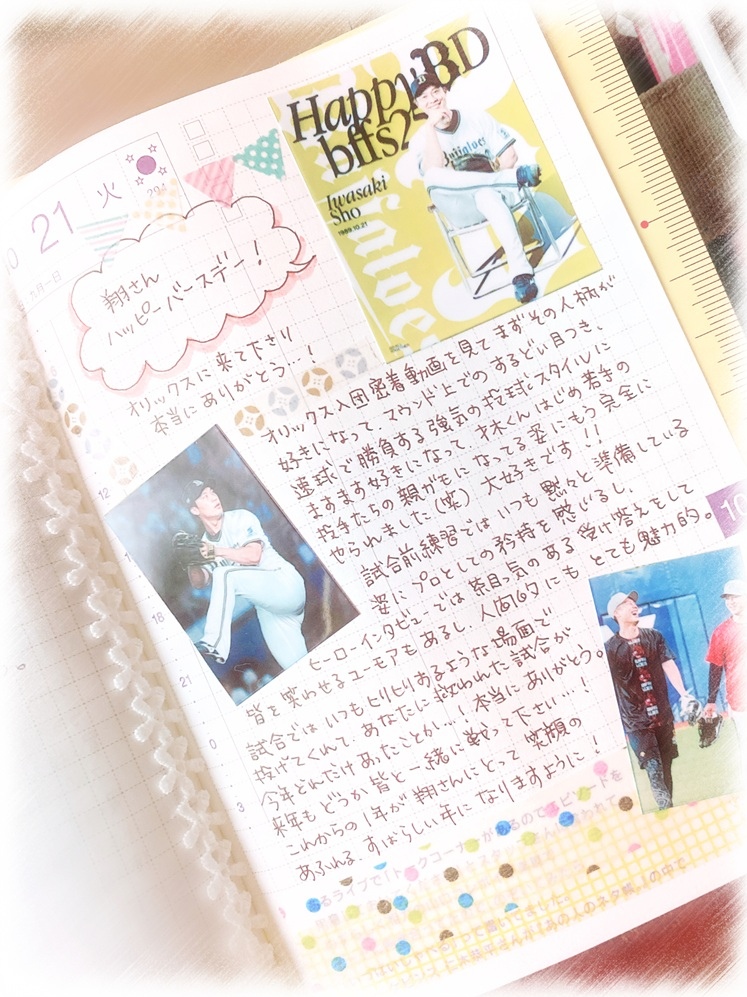 21 火
Happy BD
bffs25
Iwasaki
Sho
1989.10.21
Buffaloes
翔さん
ハッピーバースデー!
オリックスに来て下さり
本当にありがとう…!
オリックス入団密着動画を見てまずその人柄が
好きになって、マウンド上でのするどい目つき、
速球で勝負する強気の投球スタイルに
ますます好きになって、才木くんはじめ若手の
投手たちの親がもになってる姿にもう完全に
やられました(笑) 大好きです!!
試合前練習ではいつも黙々と準備している
姿にプロとしての矜持を感じるし、
ヒーローインタビューでは茶目っ気のある受け答えをして
皆を笑わせるユーモアもあるし、人間的にもとても魅力的。
試合ではいつもヒリヒリするような場面で
投げてくれて、あなたに救われた試合が
今年どんだけあったことか…!本当にありがとう。
来年もどうか皆と一緒に戦って下さい…!
これからの1年が翔さんにとって笑顔の
あふれる、すばらしい年になりますように!
12
18
21
0
3
10
るライブで「トークコーナーがあるのでエピソードを
って書いてきました。